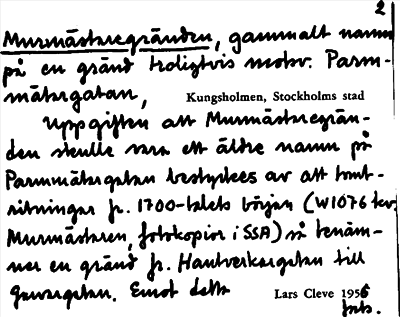 2
Murmästaregränden, gammalt namn
på en gränd troligtvis motsv. Parm-
mätargatan,
Kungsholmen, Stockholms stad
Uppgiften att Murmästaregrän-
den skulle vara ett äldre namn på
Parmmätargatan bestyrkes av att tomt-
ritningar fr. 1700-talets början (W1076 kv.
Murmästaren, fotokopior i SSA) så benäm-
ner en gränd fr. Hantverkargatan till
Garvargatan. Emot detta
Lars Cleve 1956
forts.